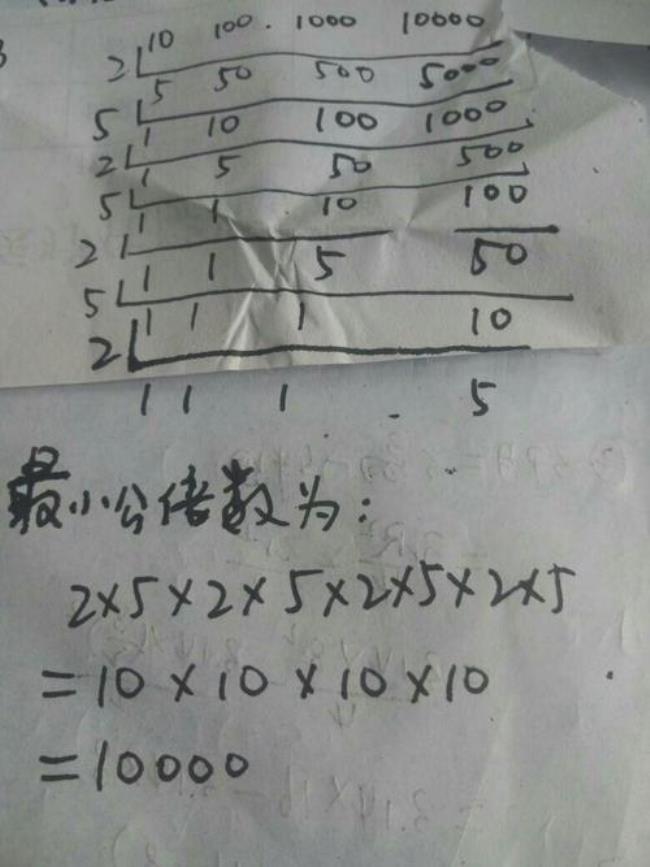 10 100 . 1000 10000
2 5 50 500 5000
5 1 10 100 1000
2 1 5 50 500
5 1 1 10 100
2 1 1 5 50
5 1 1 1 10
2
1 1 1 5
最小公倍数为:
2×5×2×5×2×5×2×5
=10×10×10×10
=10000